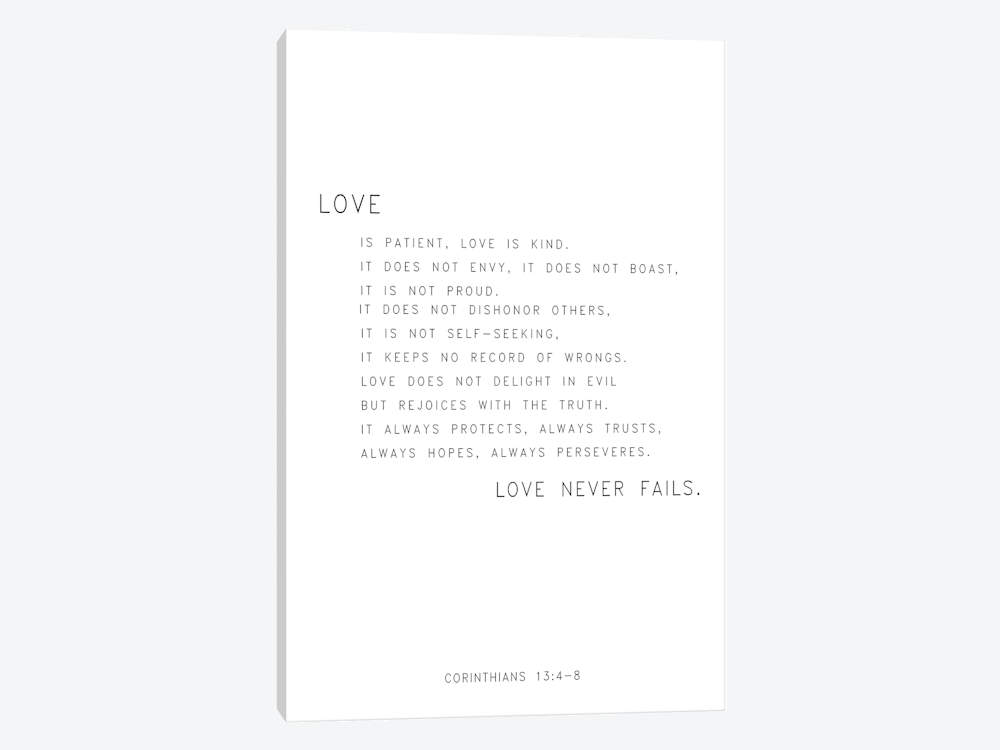 LOVE
IS PATIENT, LOVE IS KIND.
IT DOES NOT ENVY, IT DOES NOT BOAST,
IT IS NOT PROUD.
IT DOES NOT DISHONOR OTHERS,
IT IS NOT SELF-SEEKING,
IT KEEPS NO RECORD OF WRONGS.
LOVE DOES NOT DELIGHT IN EVIL
BUT REJOICES WITH THE TRUTH.
IT ALWAYS PROTECTS, ALWAYS TRUSTS,
ALWAYS HOPES, ALWAYS PERSEVERES.
LOVE NEVER FAILS.
CORINTHIANS 13:4-8